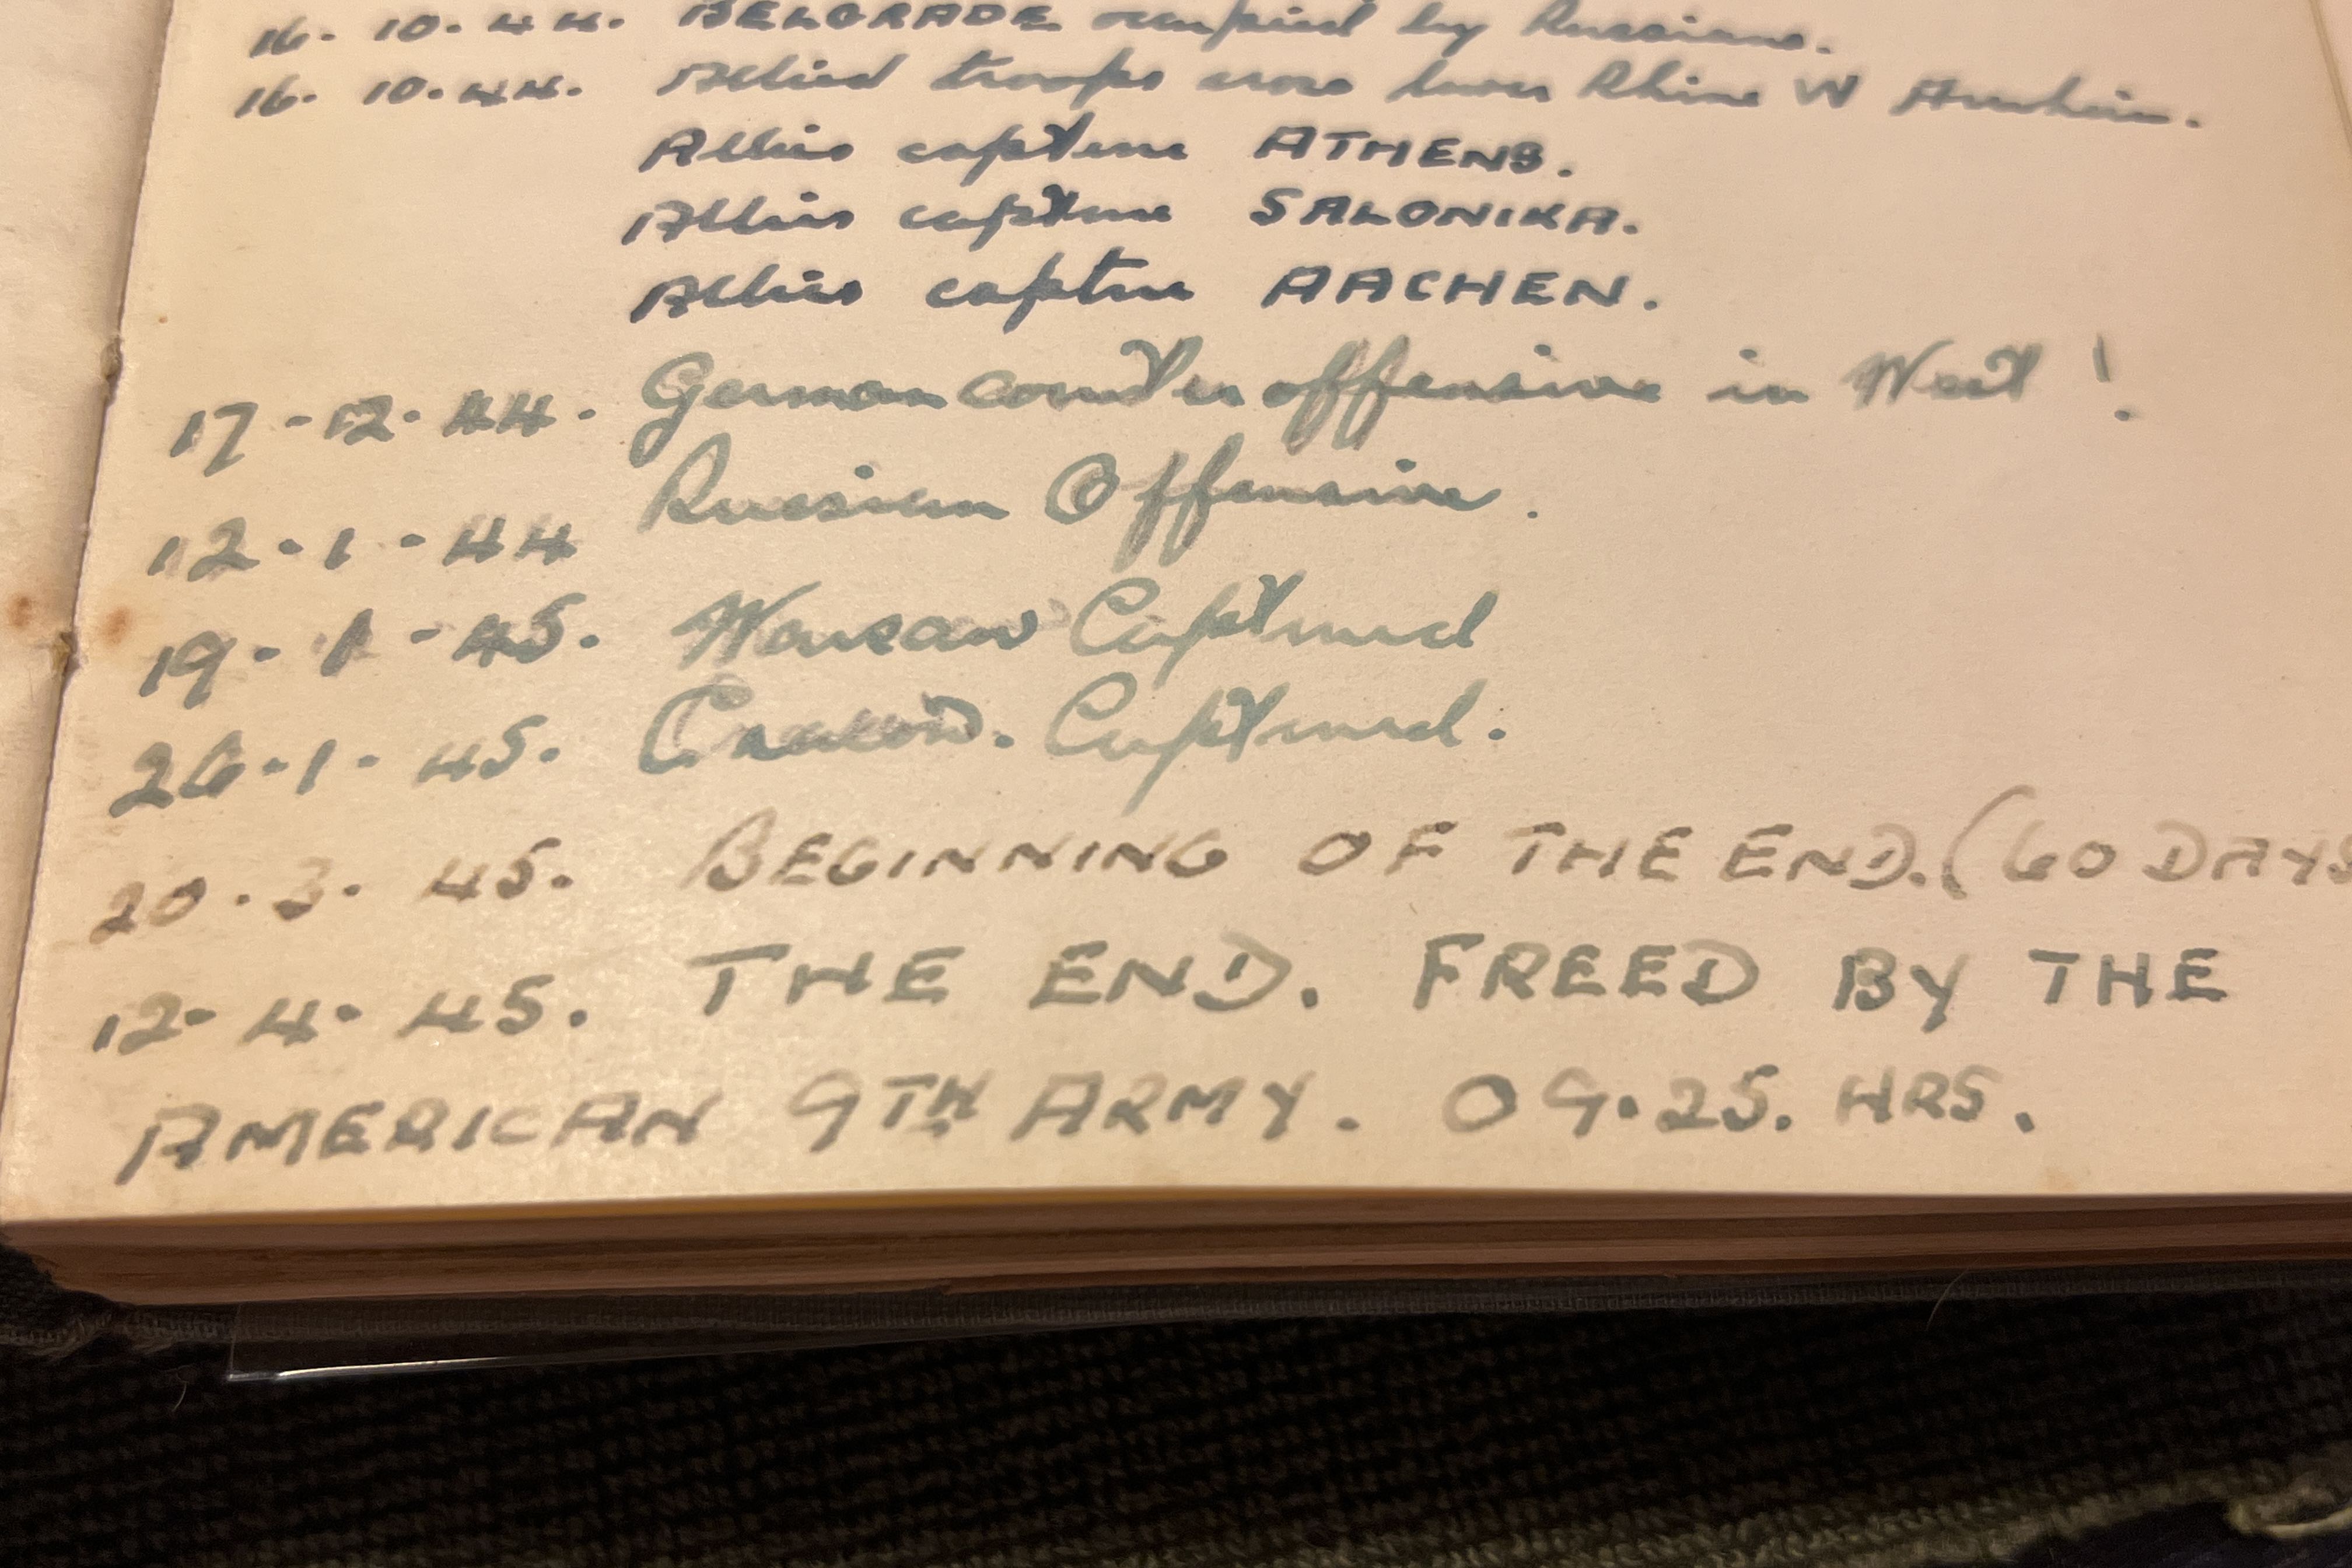 16. 10. 44. BELGRADE occupied by Russians.
16. 10. 44. Allied troops cross lower Rhine W Arnheim.
Allies capture ATHENS.
Allies capture SALONIKA.
Allies capture AACHEN.
17-12-44. German counter offensive in West!
12-1-44 Russian Offensive.
19-1-45. Warsaw Captured
26-1-45. Cracow. Captured.
20.3.45. BEGINNING OF THE END. (60 DAYS
12.4.45. THE END. FREED BY THE
AMERICAN 9TH ARMY. 09.25. HRS.